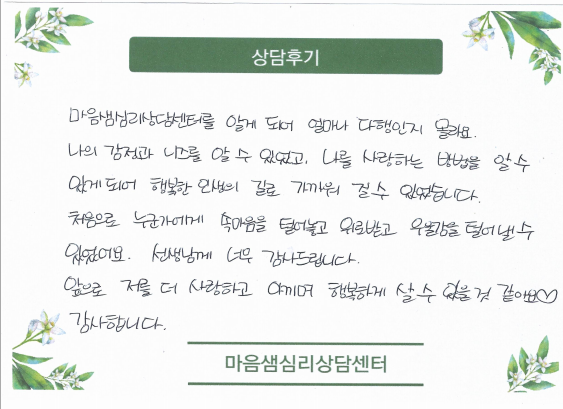 상담후기
마음샘심리상담센터를 알게 되어 얼마나 다행인지 몰라요.
나의 감정과 니즈를 알 수 있었고, 나를 사랑하는 방법을 알 수
있게 되어 행복한 인생의 길로 가까워 질 수 있었습니다.
처음으로 누군가에게 속마음을 털어놓고 위로받고 우울감을 털어낼 수
있었어요. 선생님께 너무 감사드립니다.
앞으로 저를 더 사랑하고 아끼며 행복하게 살 수 있을 것 같아요♡
감사합니다.
마음샘심리상담센터